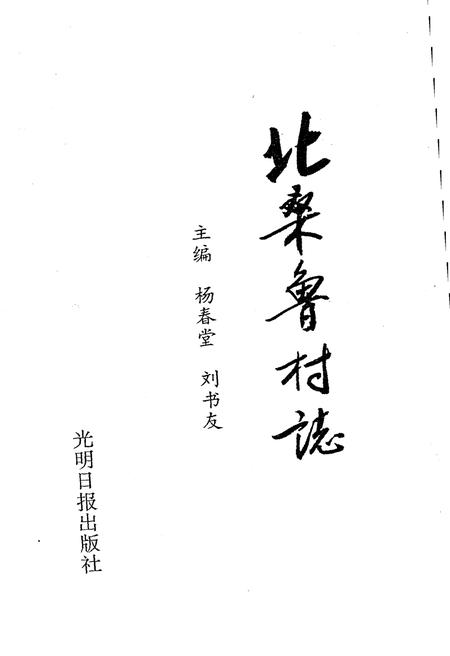 北桑鲁村誌
主编 杨春堂 刘书友
光明日报出版社